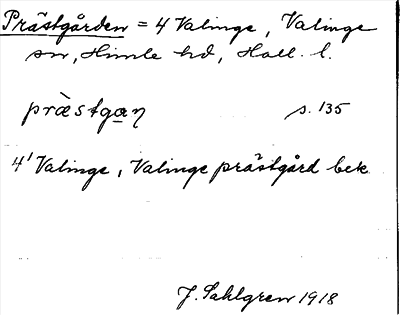 Prästgården = 4 Valinge, Valinge
sn, Himle hd, Hall. l.
præ̀stga̱ɳ s. 135
4¹ Valinge, Valinge prästgård bek.
J. Sahlgren 1918